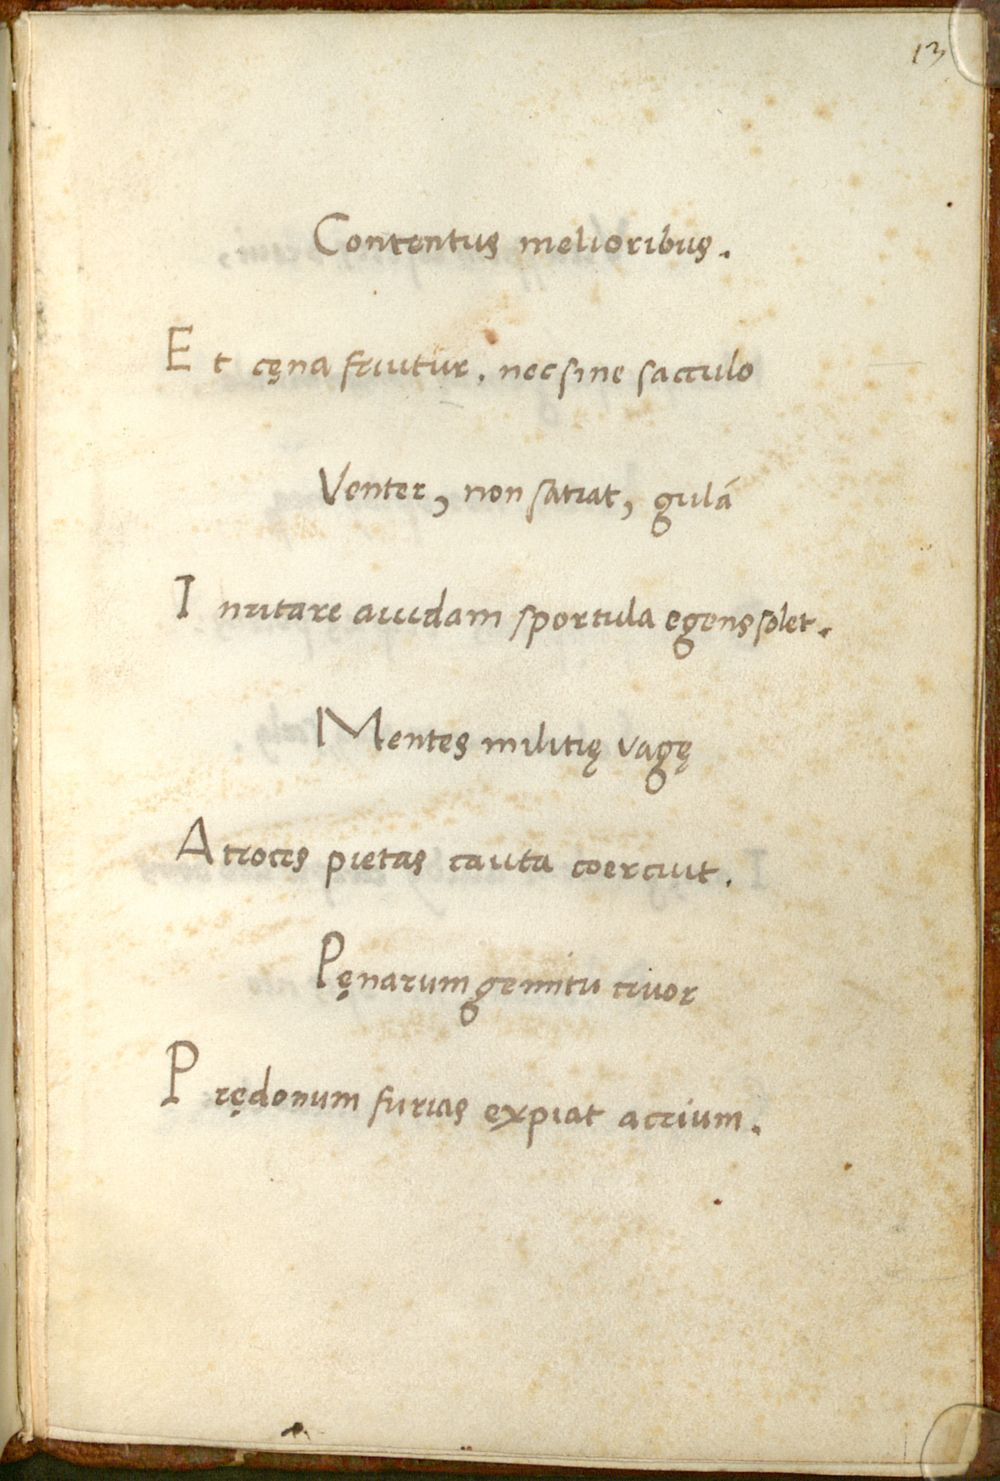 13
Contentus melioribus.
Et cęna fruitur. nec sine sacculo
Venter, non satiat, gulá
Inuitare auidam sportula egens solet.
Mentes militię vagę
Atrocis pietas cauta coercuit.
Pęnarum gemitu cruor
Prędonum furias expiat acrium.